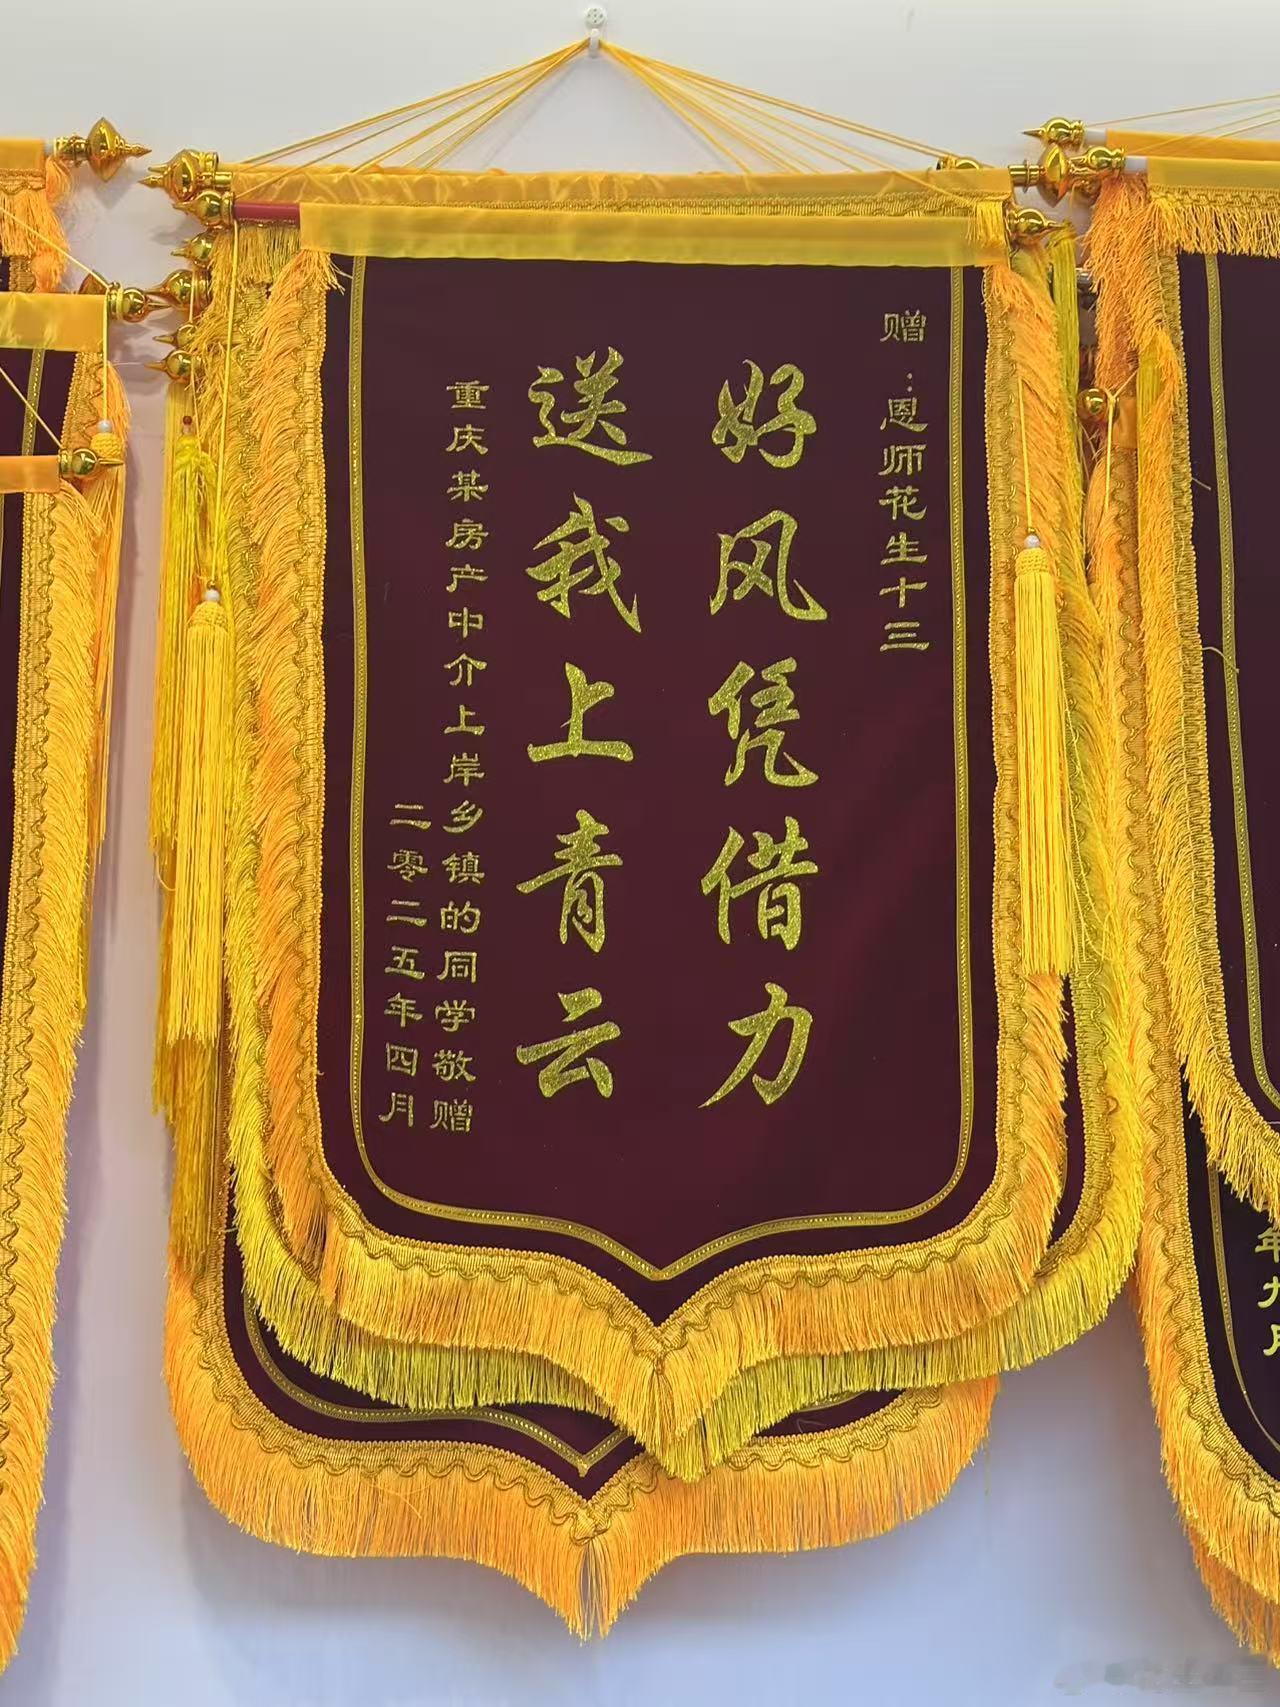 赠：恩师花生十三
好风凭借力
送我上青云
重庆某房产中介上岸乡镇的同学敬赠
二零二五年四月
年九月